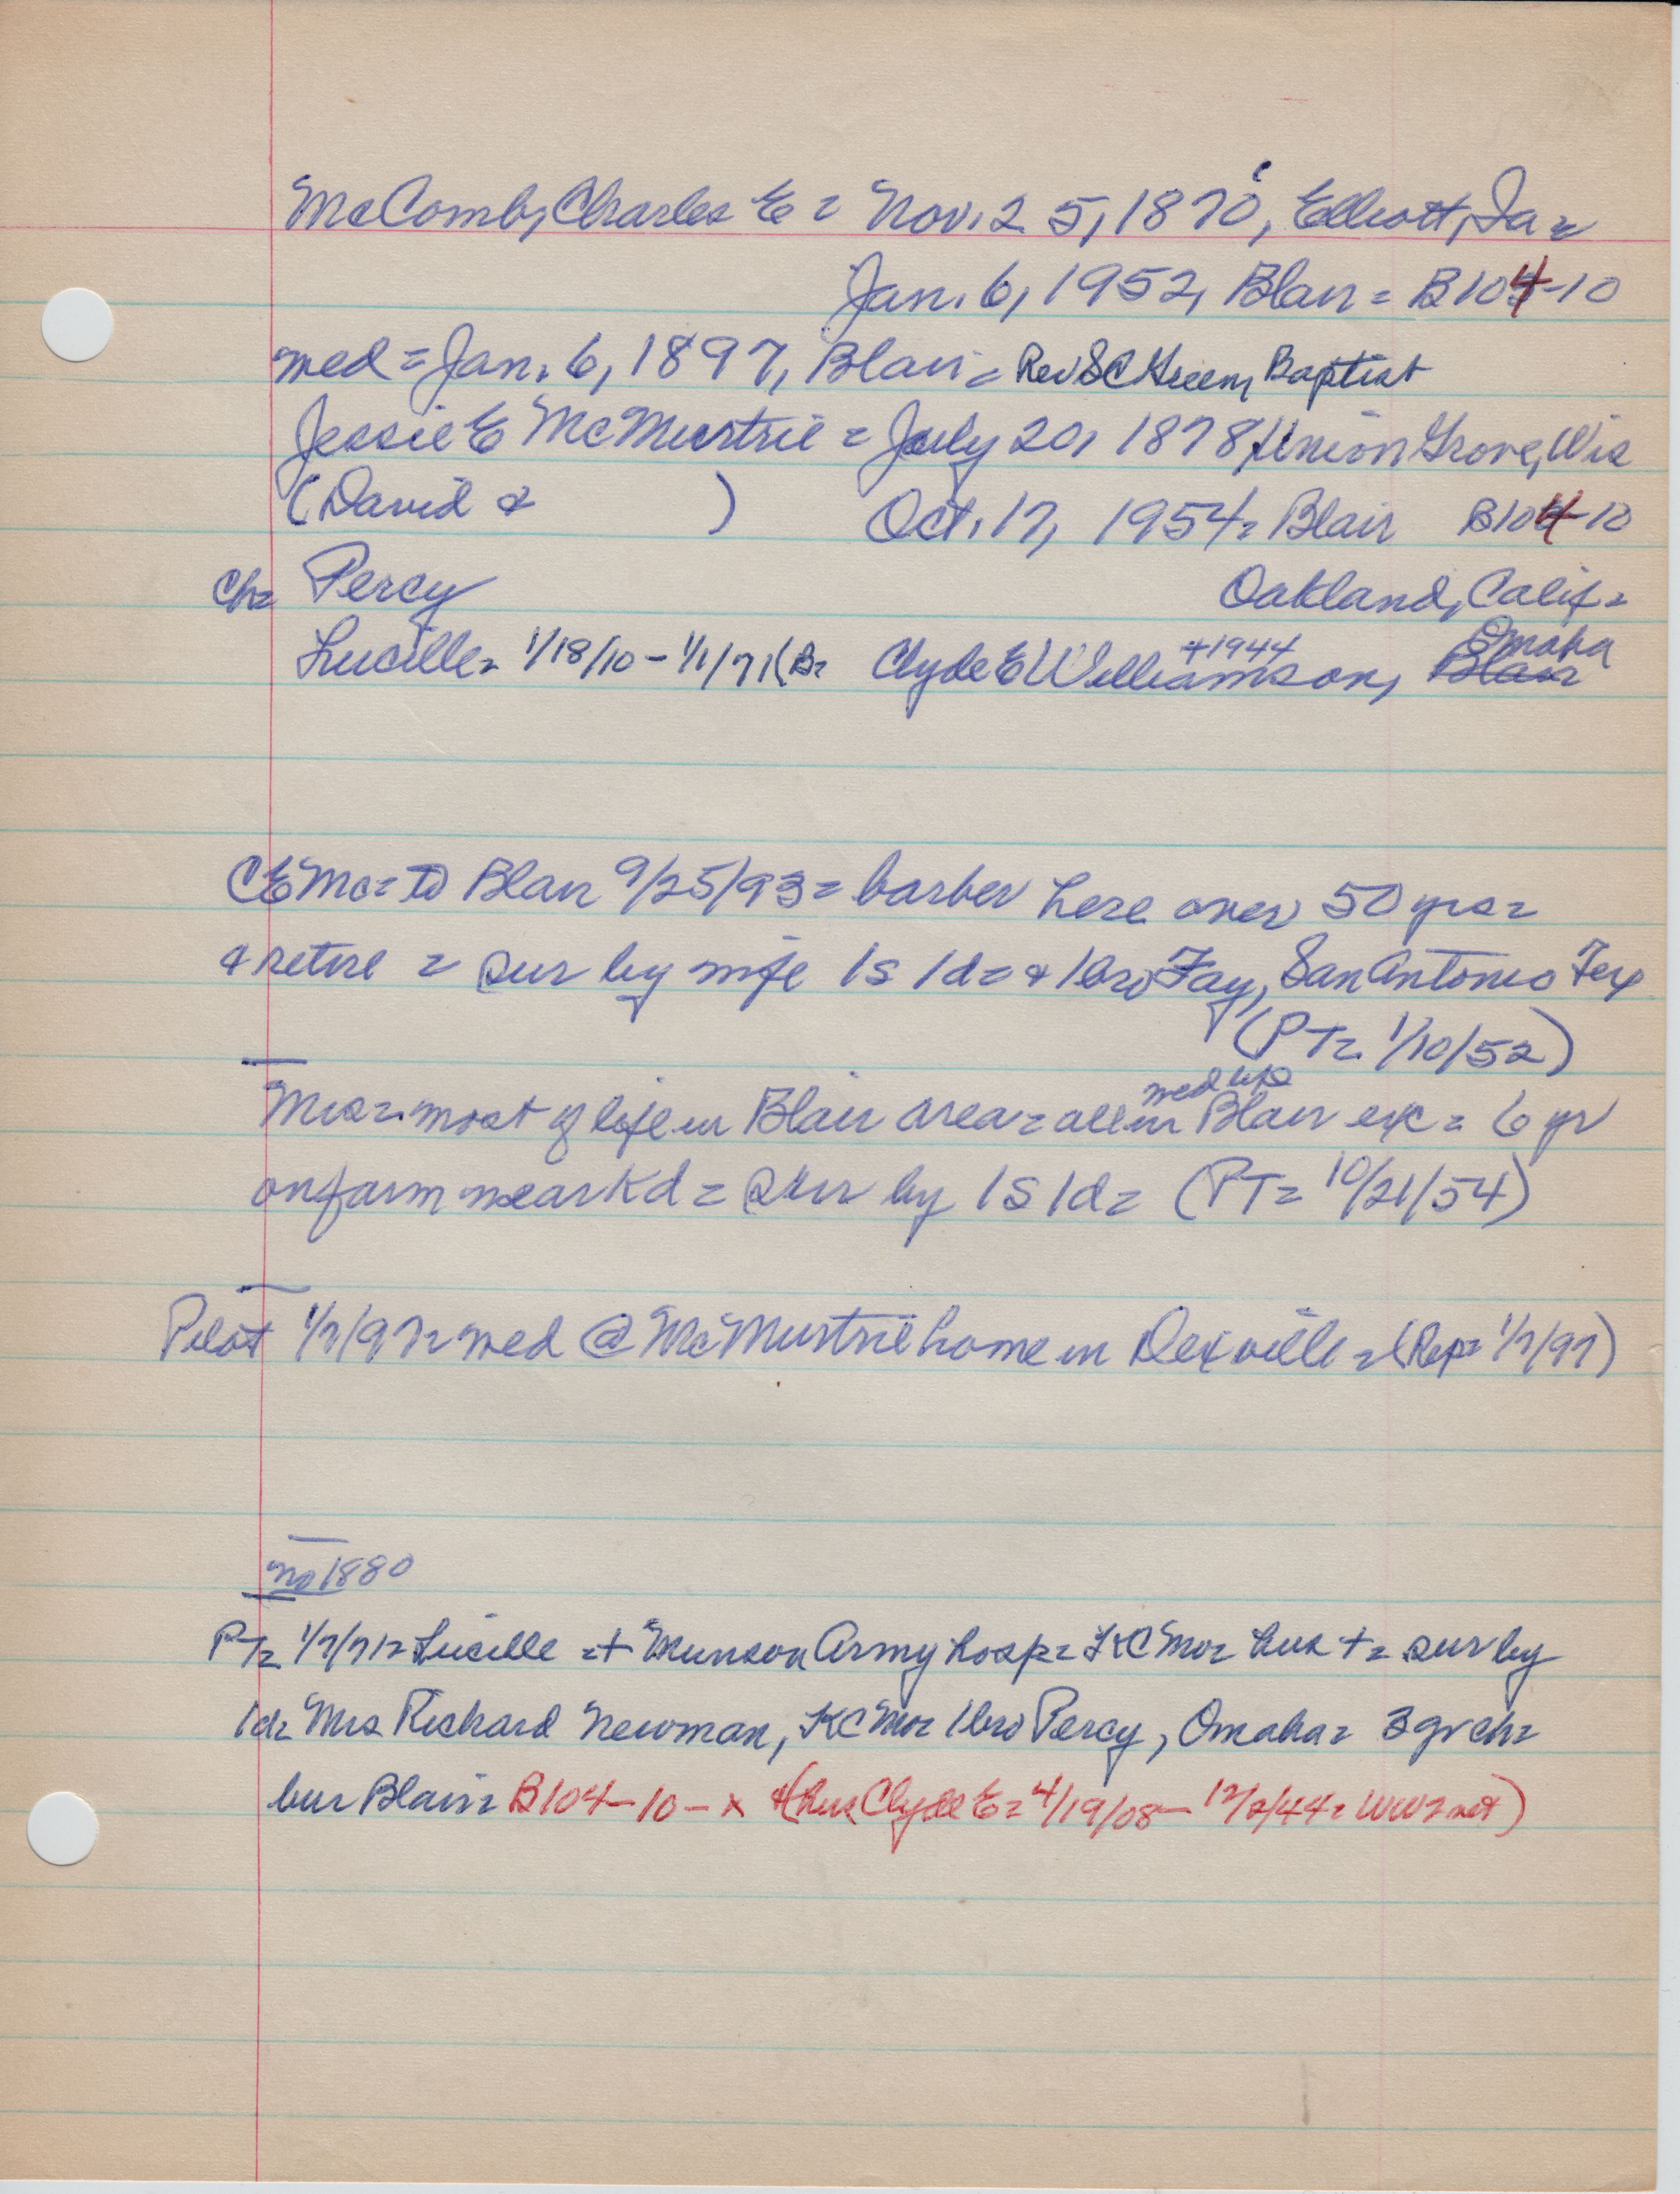 McComb, Charles E = Nov. 25, 1870, Elliott, Ia =
Jan. 6, 1952, Blair = B104-10
med = Jan. 6, 1897, Blair = Rev S C Green, Baptist
Jessie E McMurtrie = July 20, 1878, Union Grove, Wis
(David & ) Oct. 17, 1954 = Blair B104-10
Ch = Percy Oakland, Calif =
Lucille = 1/18/10 - 1/1/71 (B = Clyde E Williamson, +1944 Blair Omaha
CE Mc = to Blair 9/25/93 = barber here over 50 yrs =
& retire = sur by wife 1s 1d = & 1 bro Fay, San Antonio Tex
(PT = 1/10/52)
Mrs = most of life in Blair area = all med life in Blair exc = 6 yr
on farm near Kd = sur by 1s 1d = (PT = 10/21/54)
Pilot 1/7/97 = med @ McMurtrie home in Dexville = (Rep = 1/7/97)
no 1880
PT = 1/7/71 = Lucille = + Munson Army hosp = KC Mo = hus + = sur by
1d = Mrs Richard Newman, KC Mo = 1 bro Percy, Omaha = 3 gr ch =
bur Blair = B104-10-x & (hus Clyde E = 4/19/08 - 12/2/44 = WW2 vet)